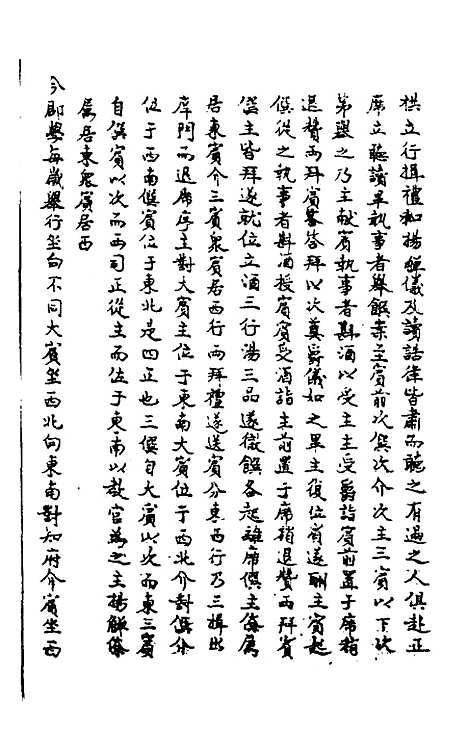 拱立行揖禮如揚觶儀及讀誥律皆肅而聽之有過之人俱赴正
席立聽讀畢執事者舉饌案至賓前次僎次介次主三賓以下次
第舉之乃主獻賓執事者斟酒以受主主受爵詣賓前置于席稍
退贊兩拜賓答拜以次奠爵儀如之畢主復位賓遂酬主賓起
僎從之執事者斟酒授賓賓受酒詣主前置于席稍退贊兩拜賓
僎主皆拜遂就位立酒三行湯三品遂徹饌各起離席僎主僚屬
居東賓介三賓衆賓居西行兩拜禮遂送賓分東西行乃三揖出
庠門而退席序主對大賓主位于東南大賓位于西北介對僎介
位于西南僎賓位于東北是四正也三僎自大賓以次而東三賓
自僎賓以次而西司正從主而位于東南以教官為之主揚觶僚
屬居東衆賓居西
今郡學每歲舉行坐向不同大賓坐西北向東南對知府介賓坐西